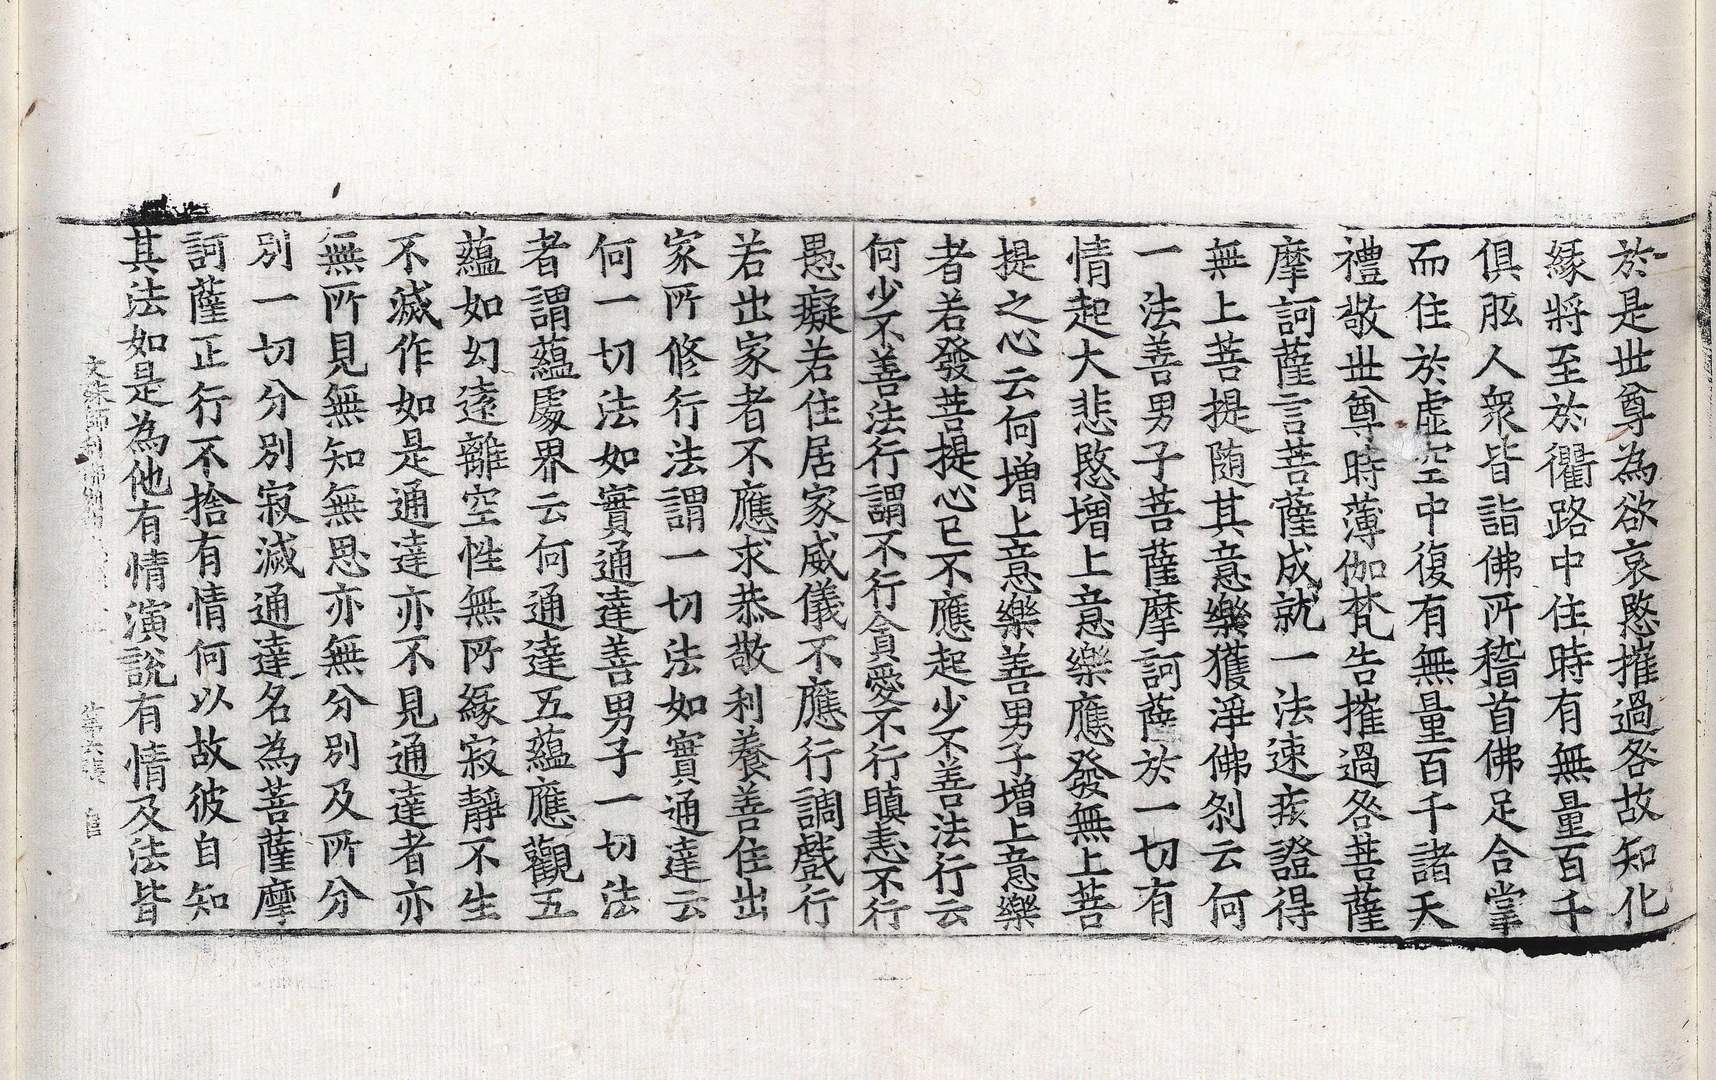 於是世尊為欲哀愍摧過咎故知化
緣將至於衢路中住時有無量百千
俱胝人眾皆詣佛所稽首佛足合掌
而住於虛空中復有無量百千諸天
禮敬世尊時薄伽梵告摧過咎菩薩
摩訶薩言菩薩成就一法速疾證得
無上菩提隨其意樂獲淨佛剎云何
一法善男子菩薩摩訶薩於一切有
情起大悲愍增上意樂應發無上菩
提之心云何增上意樂善男子增上意樂
者若發菩提心已不應起少不善法行云
何少不善法行謂不行貪愛不行瞋恚不行
愚癡若住居家威儀不應行調戲行
若出家者不應求恭敬利養善住出
家所修行法謂一切法如實通達云
何一切法如實通達善男子一切法
者謂蘊處界云何通達五蘊應觀五
蘊如幻遠離空性無所緣寂靜不生
不滅作如是通達亦不見通達者亦
無所見無知無思亦無分別及所分
別一切分別寂滅通達名為菩薩摩
訶薩正行不捨有情何以故彼自知
其法如是為他有情演說有情及法皆
文殊師利佛剎 第六張